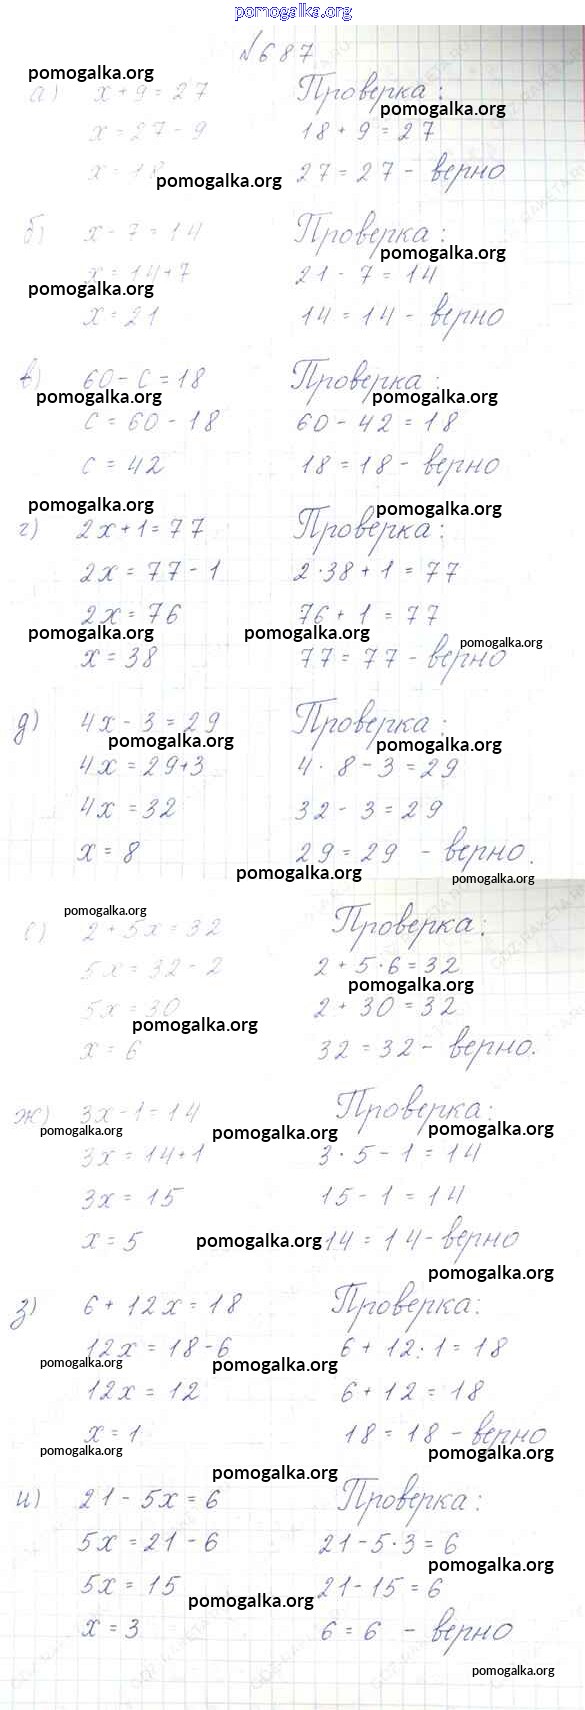 pomogalka.org
№687
pomogalka.org
а) x + 9 = 27 Проверка:
pomogalka.org
x = 27 - 9 18 + 9 = 27
x = 18 27 = 27 - верно
pomogalka.org
б) x - 7 = 14 Проверка:
pomogalka.org
x = 14 + 7 21 - 7 = 14
pomogalka.org
x = 21 14 = 14 - верно
в) 60 - c = 18 Проверка:
pomogalka.org pomogalka.org
c = 60 - 18 60 - 42 = 18
c = 42 18 = 18 - верно
pomogalka.org pomogalka.org
г) 2x + 1 = 77 Проверка:
2x = 77 - 1 2·38 + 1 = 77
2x = 76 76 + 1 = 77
pomogalka.org pomogalka.org pomogalka.org
x = 38 77 = 77 - верно
д) 4x - 3 = 29 Проверка:
pomogalka.org pomogalka.org
4x = 29+3 4· 8 - 3 = 29
4x = 32 32 - 3 = 29
x = 8 29 = 29 - верно.
pomogalka.org pomogalka.org
pomogalka.org
е) 2 + 5x = 32 Проверка:
5x = 32 - 2 2 + 5·6 = 32
pomogalka.org
5x = 30 2 + 30 = 32
pomogalka.org
x = 6 32 = 32 - верно.
ж) 3x - 1 = 14 Проверка:
pomogalka.org pomogalka.org pomogalka.org
3x = 14 + 1 3· 5 - 1 = 14
3x = 15 15 - 1 = 14
x = 5 pomogalka.org 14 = 14 - верно
pomogalka.org
з) 6 + 12x = 18 Проверка:
12x = 18 - 6 6 + 12·1 = 18
pomogalka.org pomogalka.org
12x = 12 6 + 12 = 18
x = 1 18 = 18 - верно
pomogalka.org pomogalka.org
pomogalka.org
и) 21 - 5x = 6 Проверка:
5x = 21 - 6 21 - 5·3 = 6
pomogalka.org
5x = 15 21 - 15 = 6
pomogalka.org
x = 3 6 = 6 - верно
pomogalka.org